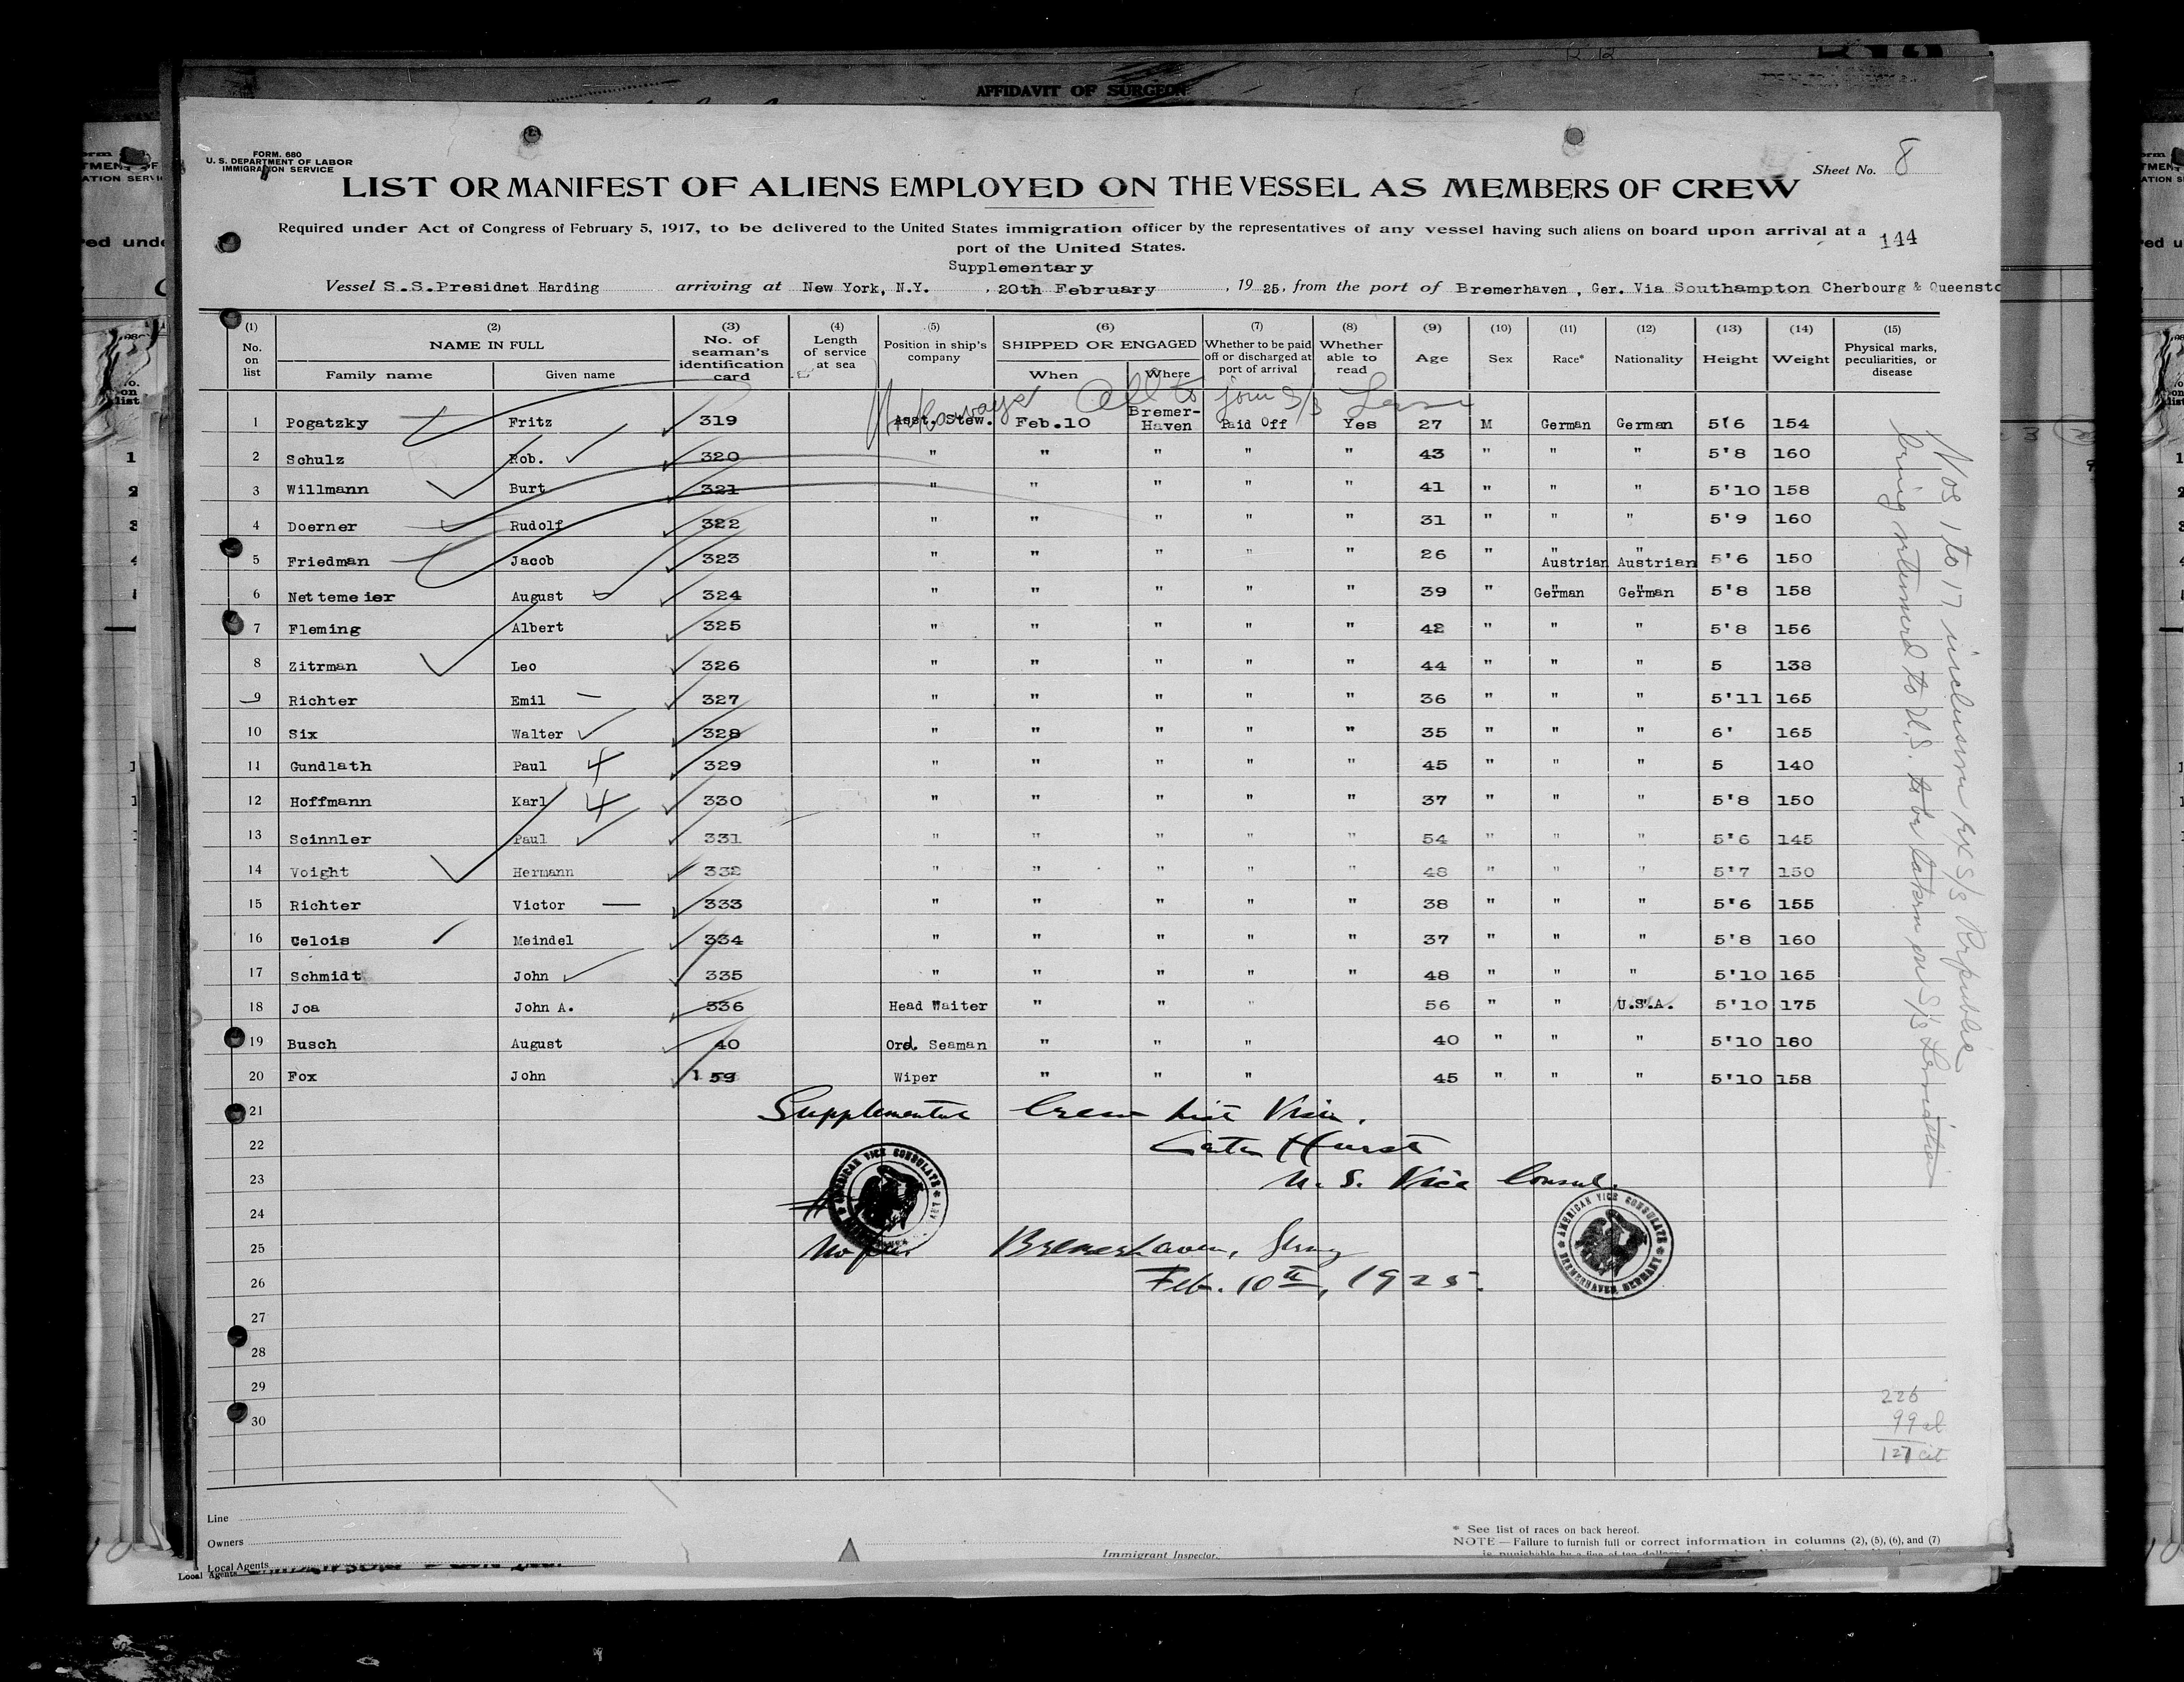 AFFIDAVIT OF SURGEON
FORM. 680
U. S. DEPARTMENT OF LABOR
IMMIGRATION SERVICE
Sheet No. 8
LIST OR MANIFEST OF ALIENS EMPLOYED ON THE VESSEL AS MEMBERS OF CREW
Required under Act of Congress of February 5, 1917, to be delivered to the United States immigration officer by the representatives of any vessel having such aliens on board upon arrival at a
port of the United States.
144
Supplementary
Vessel S.S.Presidnet Harding arriving at New York, N.Y. , 20th February , 1925, from the port of Bremerhaven, Ger. Via Southampton Cherbourg & Queensto
(1) (2) (3) (4) (5) (6) (7) (8) (9) (10) (11) (12) (13) (14) (15)
No. on list NAME IN FULL Family name Given name No. of seaman's identification card Length of service at sea Position in ship's company SHIPPED OR ENGAGED When Where Whether to be paid off or discharged at port of arrival Whether able to read Age Sex Race* Nationality Height Weight Physical marks, peculiarities, or disease
All to join S/S
1 Pogatzky Fritz 319 Asst. Stew. Feb.10 Bremer-Haven Paid Off Yes 27 M German German 5'6 154
2 Schulz Rob. 320 " " " " " 43 " " " 5'8 160
3 Willmann Burt 321 " " " " " 41 " " " 5'10 158
4 Doerner Rudolf 322 " " " " " 31 " " " 5'9 160
5 Friedman Jacob 323 " " " " " 26 " " Austrian " Austrian 5'6 150
6 Nettemeier August 324 " " " " " 39 " German German 5'8 158
7 Fleming Albert 325 " " " " " 42 " " " 5'8 156
8 Zitrman Leo 326 " " " " " 44 " " " 5 138
9 Richter Emil 327 " " " " " 36 " " " 5'11 165
10 Six Walter 328 " " " " " 35 " " " 6' 165
11 Gundlath Paul 329 " " " " " 45 " " " 5 140
12 Hoffmann Karl 330 " " " " " 37 " " " 5'8 150
13 Scinnler Paul 331 " " " " " 54 " " " 5'6 145
14 Voight Hermann 332 " " " " " 48 " " " 5'7 150
15 Richter Victor 333 " " " " " 38 " " " 5'6 155
16 Celois Meindel 334 " " " " " 37 " " " 5'8 160
17 Schmidt John 335 " " " " " 48 " " " 5'10 165
18 Joa John A. 336 Head Waiter " " " 56 " " U.S.A. 5'10 175
19 Busch August 40 Ord. Seaman " " " 40 " " " 5'10 160
20 Fox John 159 Wiper " " " 45 " " " 5'10 158
21
22
23
24
25
26
27
28
29
30
Supplemental Crew List Visa.
Hurst
U. S. Vice Consul.
No fee.
Bremerhaven, Germy
Feb. 10th, 1925.
AMERICAN VICE CONSULATE
AMERICAN VICE CONSULATE BREMERHAVEN, GERMANY
Nos 1 to 17 inclusive ex S/S Republic
being returned to U.S. to be taken on S/S Leviathan
226
99 al
127 cit
Line
Owners
Local Agents
Local Agents
Immigrant Inspector.
* See list of races on back hereof.
NOTE — Failure to furnish full or correct information in columns (2), (5), (6), and (7)
is punishable by a fine of ten dollars